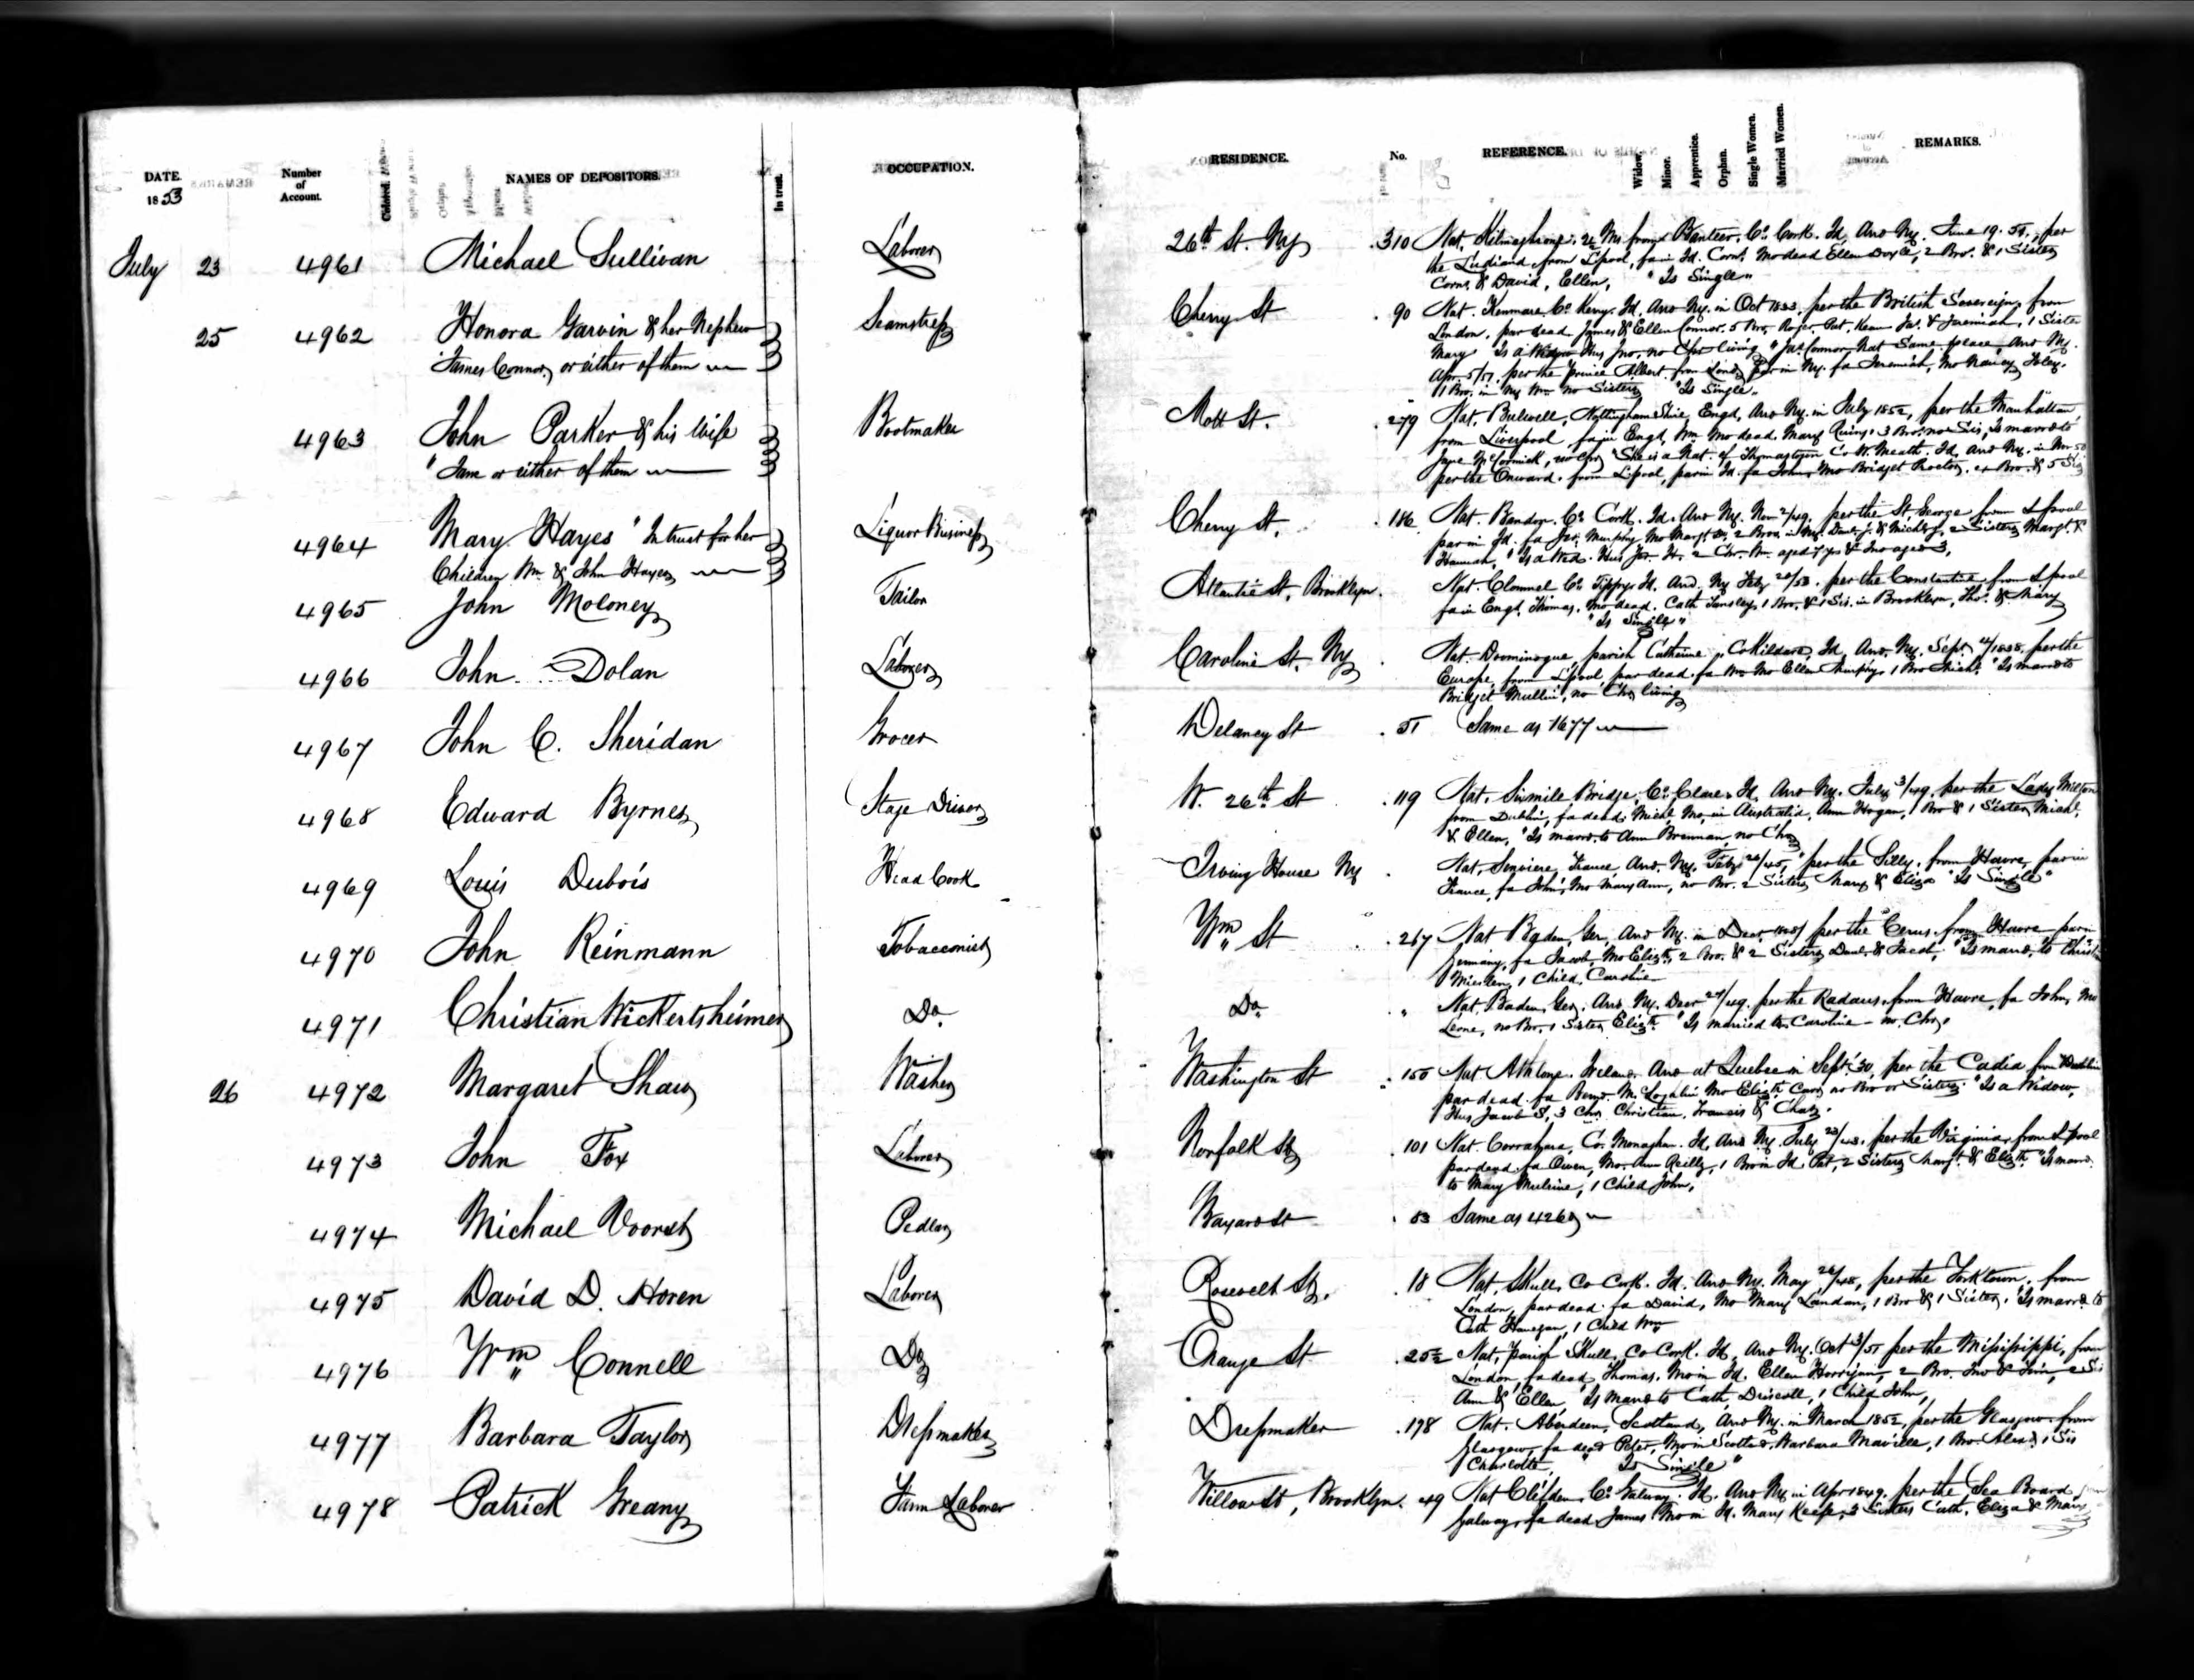 DATE.
1853
Number
of
Account.
Colored.
NAMES OF DEPOSITORS.
In trust.
OCCUPATION.
RESIDENCE.
No.
REFERENCE.
Widow.
Minor.
Apprentice.
Orphan.
Single Women.
Married Women.
REMARKS.
July 23 4961 Michael Sullivan Laborer 26th St. Ny 310 Nat. 2½ Ms from Banteer, Co. Cork. Id, Arvd Ny. June 19. 51, per
the from Lpool, fa in Id. Corns, Mo dead Ellen Doyle, 2 Bro. & 1 Sister
Corns. & David, Ellen, "Is Single"
25 4962 Honora Garvin & her Nephew Seamstress Cherry St 90 Nat. Kenmare Co. Kerry Id. Arvd Ny. in Oct 1833, per the British Sovereign, from
James Connor, or either of them
London, par dead James & Ellen Connor. 5 Bro, Roger, Pat, Kean Jas. & Jeremiah, 1 Sister
Mary Is a Widow Hus Jno. no Chn living " Jas. Connor, Nat Same place Arvd Ny.
Apr. 5/51. per the Prince Albert from London par in Ny. fa Jeremiah, Mo Nancy Foley.
1 Bro. in Ny Wm no Sisters "Is Single"
4963 John Parker & his Wife Bootmaker Mott St. 279 Nat. Bulwell, Nottingham Shire, Engd, Arvd Ny. in July 1852, per the Manhattan,
"Jane or either of them
from Liverpool, fa in Engd, Wm Mo dead, Mary 3 Bro. no Sis, Is marrd to
Jane McCormick, no Chn "She is a Nat. of Thomastown Co W. Meath. Id, Arvd Ny. in Nov 50
per the Onward, from Lpool, par in Id. fa John, Mo Bridget Proctor, 4 Bro. & 5 Sis
4964 Mary Hayes "In trust for her Liquor Business Cherry St. 186 Nat. Bandon Co. Cork. Id. Arvd Ny. Nov 2/49, per the St. George from Lpool
Children Wm. & John Hayes
par in Id. fa Murphy, Mo Margt 2 Bros. in Ny. Danl. J. & Michl J, 2 Sisters Margt. &
Hannah, "Is a Wid. Hus Jas. H. 2 Chn. Wm. aged 7 yrs & Jno aged 3,
4965 John Moloney Tailor Atlantic St, Brooklyn. Nat. Clonmel Co. Tippy, Id. Arvd. Ny Feby 20/53. per the Constantine from Lpool
fa in Engd, Thomas, Mo dead. Cath Tansley, 1 Bro. & 1 Sis. in Brooklyn, Thos. & Mary
"Is Single"
4966 John Dolan Laborer Caroline St. Ny Nat. parish Catherine, Co Kildare, Id, Arvd. Ny, Sept. per the
Europe, from Lpool, par dead. fa Wm Mo Ellen Murphy, 1 Bro Michl. "Is marrd to
Bridget Mullin, no Chn living
4967 John C. Sheridan Grocer Delancy St 51 Same as 1677
4968 Edward Byrnes Stage Driver W. 26th St 119 Nat. Sixmile Bridge, Co. Clare. Id, Arvd Ny. July 3/49, per the Lady Milton
from Dublin, fa dead, Michl, Mo, in Australia, Ann Hogan, 1 Bro & 1 Sister, Michl.
& Ellen, "Is marrd. to Ann Brennan, no Chn
4969 Louis Dubois Head Cook Irving House Ny Nat. France, Arvd. Ny. Feby 26/45, per the Silly, from Havre, par in
France, fa John, Mo Mary Ann, no Bro. 2 Sisters Mary & Eliza "Is Single"
4970 John Reinmann Tobacconist Wm St 267 Nat Baden, Ger, Arvd Ny. in Decr. per the from Havre par in
Germany, fa Jacob, Mo Elizth, 2 Bro. & 2 Sisters Danl. & Jacob, "Is marrd. to
1 Child, Caroline
4971 Christian Wickertsheimer Do. Do. " Nat. Baden, Ger. Arvd Ny. Decr 24/49, per the from Havre, fa John, Mo
no Bro. 1 Sister, Elizth. "Is married to Caroline no. Chn.
26 4972 Margaret Shaw Washer Washington St 150 Nat Athlone. Ireland. Arvd at Quebec in Sept. 30, per the Cadia from Dublin
par dead. fa Bernd. McLoghlin Mo Elizth no Bro or Sisters. "Is a Widow,
Hus Jacob S, 3 Chn Christian, Francis & Chas.
4973 John Fox Laborer Norfolk St 101 Nat. Co. Monaghan. Id, Arvd Ny July 23/48. per the Virginia, from Lpool
par dead, fa Owen, Mo. Ann Reilly, 1 Bro in Id. Pat, 2 Sisters Margt. & Elizth. "Is marrd.
to Mary 1 Child John,
4974 Michael Voorst Pedlar Bayard St 83 Same as 4260
4975 David D. Horen Laborer Rosevelt St. 18 Nat, Skull, Co Cork. Id. Arvd Ny. May 26/48, per the Yorktown, from
London, par dead. fa David, Mo Mary 1 Bro & 1 Sister. "Is marrd. to
Cath Hanegan, 1 Child Wm
4976 Wm Connell Do Orange St 25½ Nat, parish Skull, Co Cork. Id, Arvd Ny. Oct 3/51 per the Misisisippi, from
London, fa dead, Thomas, Mo in Id. Ellen Horrigan, 2 Bro. Jno & Tim, 2 Sis
Ann & Ellen, "Is marrd to Cath. Driscoll, 1 Child John,
4977 Barbara Taylor Dressmaker Dressmaker 178 Nat. Aberdeen, Scotland, Arvd Ny. in March 1852, per the Glasgow. from
Glasgow, fa dead Peter, Mo in Scotld. Barbara 1 Bro. Alexd. 1 Sis
Charlotte, "Is Single"
4978 Patrick Greany Farm Laborer Willow St, Brooklyn. 49 Nat Clifden, Co. Galway. Id. Arvd Ny in Apr 1849. per the Sea Board
Galway, fa dead, James, Mo in Id. Mary Keefe, 3 Sisters Cath, Eliza & Mary